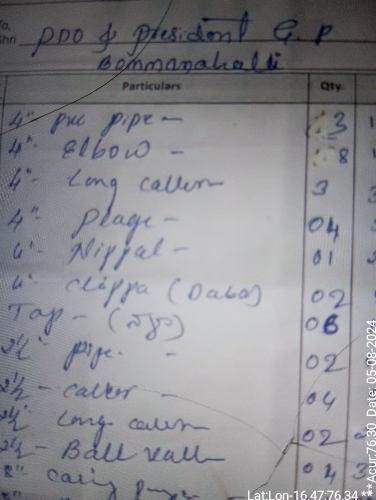 To,
Shri PDO & president G.P
Bommanahalli
Particulars Qty.
4" pvc pipe - 3
4" Elbow - 8
4" Long caller 3
4" Plage - 04
4" Nippal - 01
4" clippa (Daba) 02
Tap - 06
2½" pipe - 02
2½ - caller - 04
2½" Long caller 02
2½ - Ball vall 04
8" casing
Lat:Lon-16 47:76.34
**Acur:76.30 Date: 05-08-2024